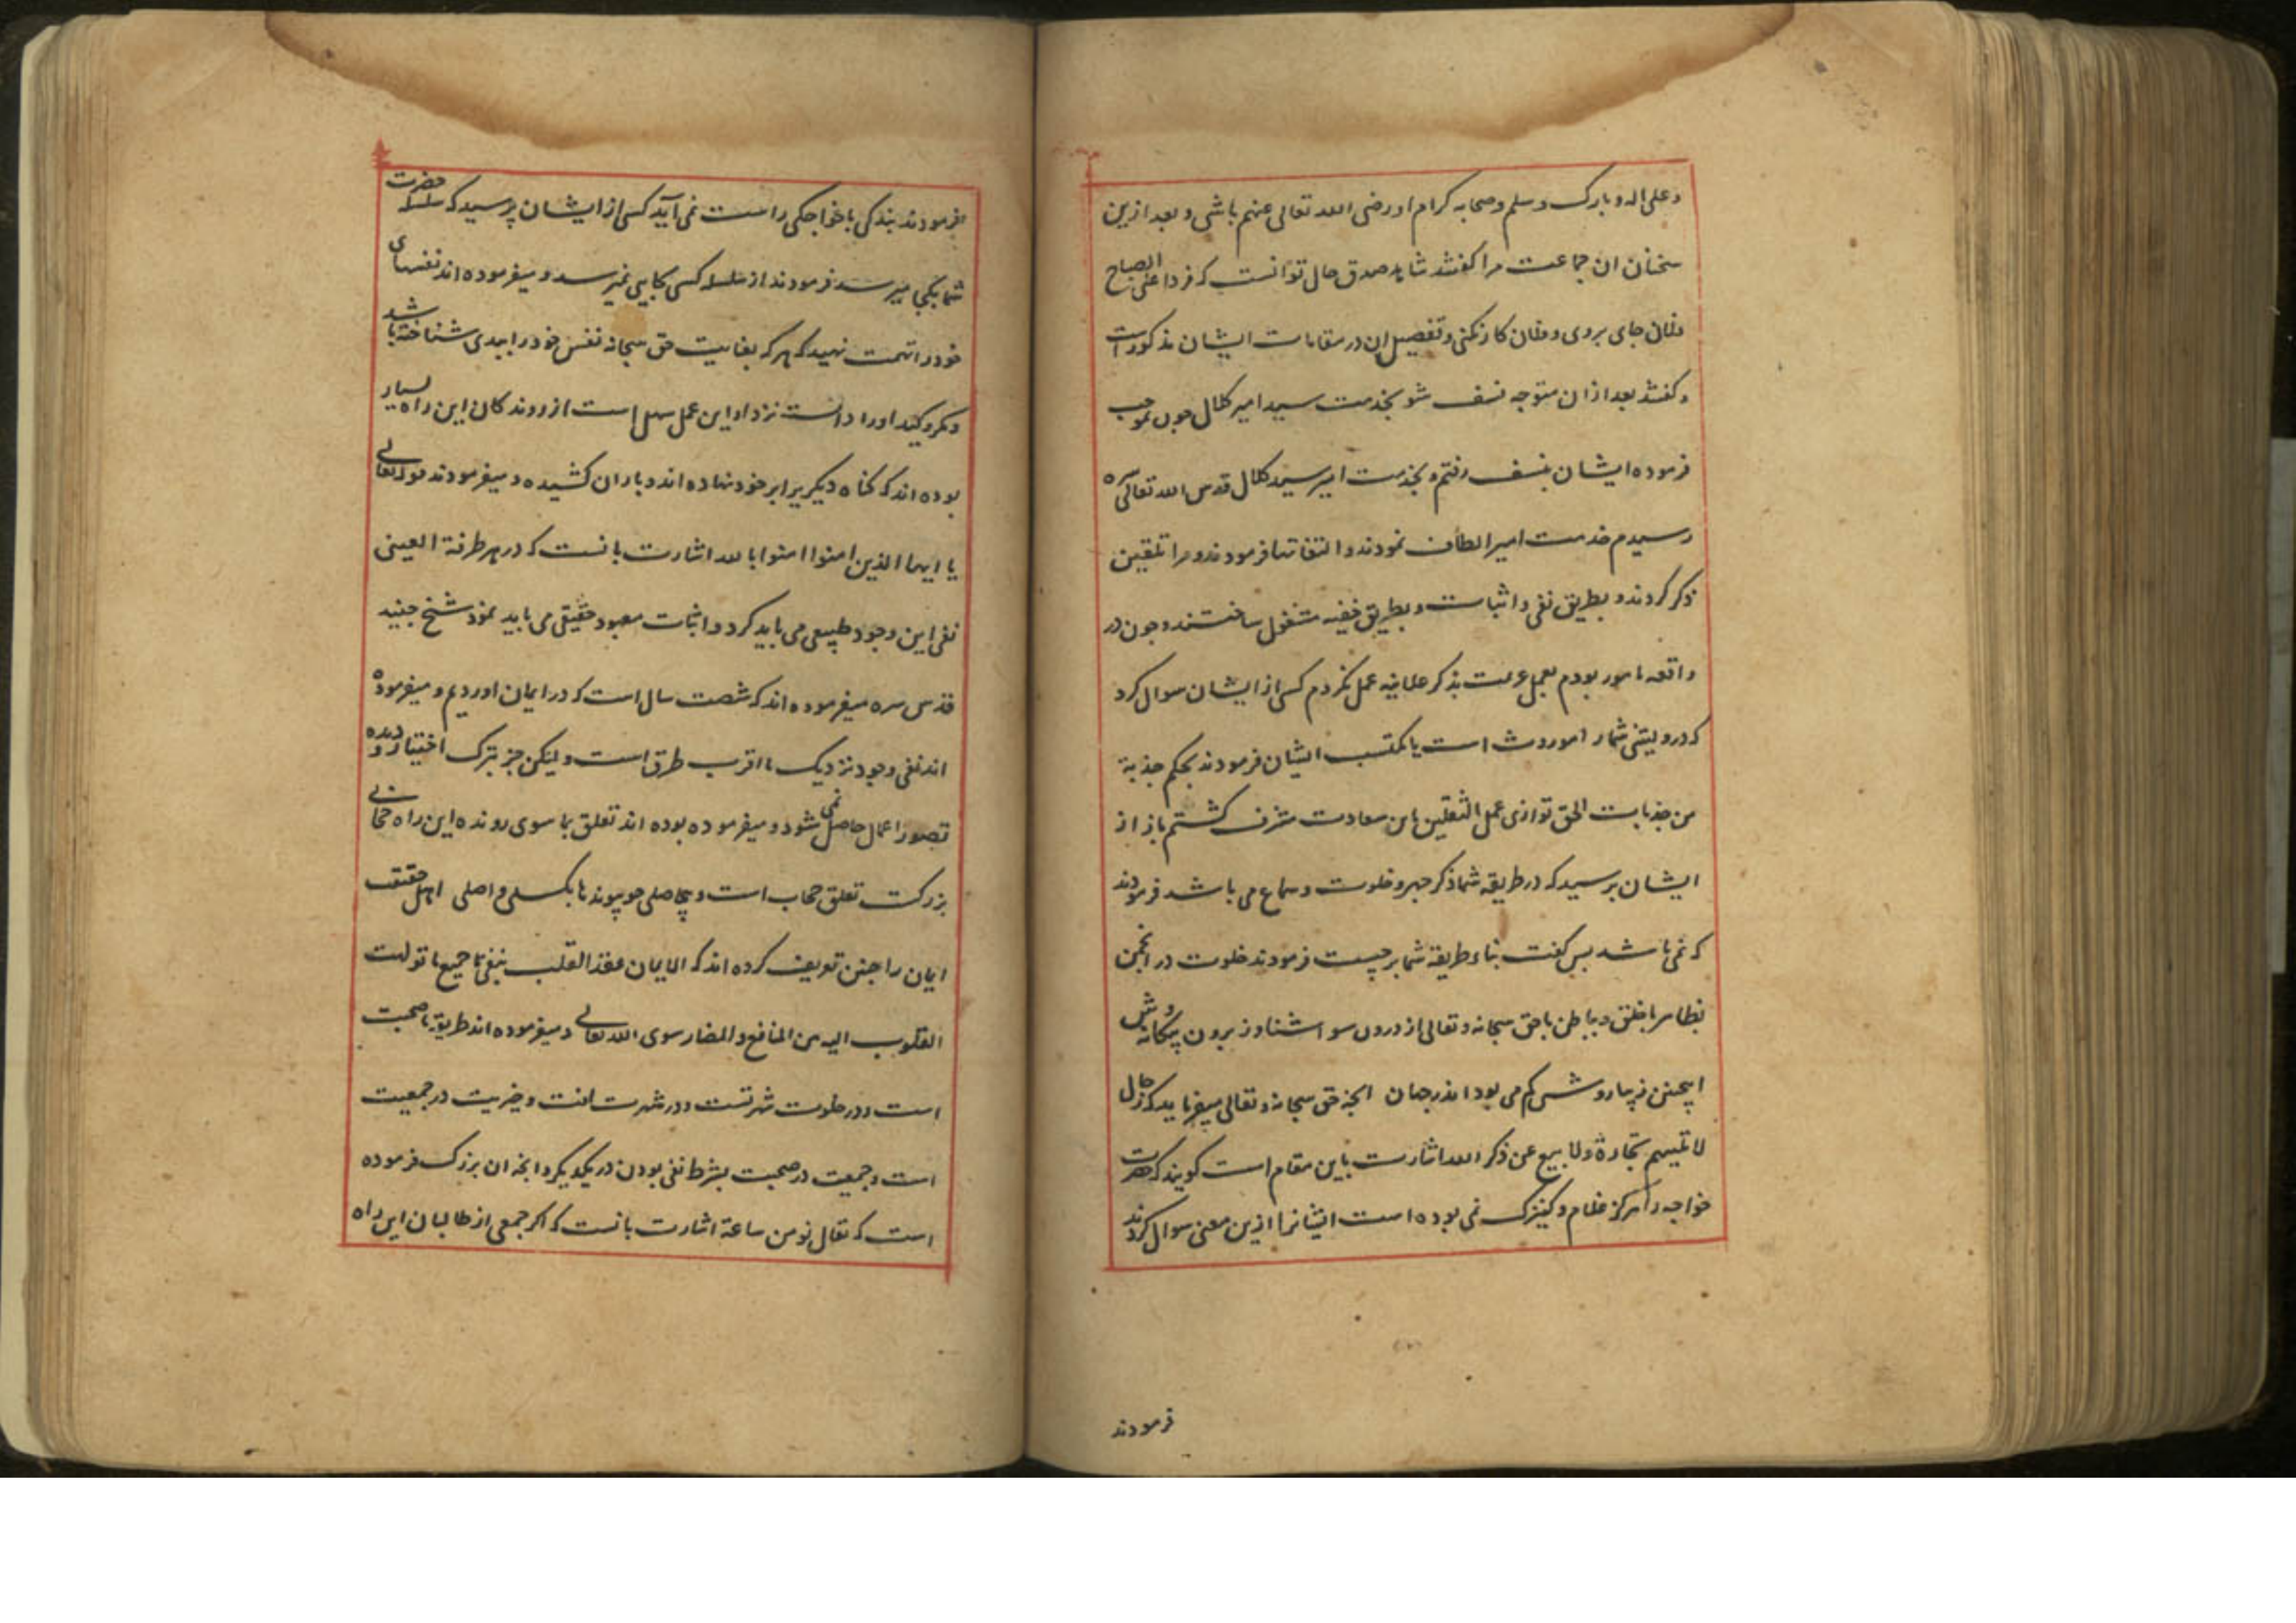 و علی اله و بارک و سلم و صحابه کرام او رضی الله تعالی عنهم باشی و بعد ازین
سخنان ان جماعت مرا کفتند شاهد صدق حال تو انست که فردا علی الصباح
فلان جای بروی و فلان کار بکنی و تفصیل ان در مقامات ایشان مذکورست
و کفتند بعد ازان متوجه نسف شو بخدمت سید امیر کلال چون بموجب
فرموده ایشان بنسف رفتم و بخدمت امیر سید کلال قدس الله تعالی سره
رسیدم خدمت امیر الطاف نمودند و التفاتها فرمودند و مرا تلقین
ذکر کردند و بطریق نفی و اثبات و بطریق خفیه مشغول ساختند و چون در
واقعه مامور بودم بعمل عزیمت بذکر علانیه عمل نکردم کسی از ایشان سوال کرد
که درویشی شما را موروث است یا مکتسب ایشان فرمودند بحکم جذبة
من جذبات الحق توازی عمل الثقلین باین سعادت مشرف کشتم باز از
ایشان پرسید که در طریقه شما ذکر جهر و خلوت و سماع می باشد فرمودند
که نمی باشد پس کفت بناء طریقه شما بر چیست فرمودند خلوت در انجمن
بظاهر با خلق و بباطن با حق سبحانه و تعالی از درون سو اشنا و ز برون بیکانه وش
اینچنین زیبا روش کم می بود اندر جهان انچه حق سبحانه و تعالی میفرماید که رجال
لا تلهیهم تجارة ولا بیع عن ذکر الله اشارت باین مقام است کویند که حضرت
خواجه را هرکز غلام و کنیزک نمی بوده است ایشانرا ازین معنی سوال کردند
فرمودند
فرمودند بندکی با خواجکی راست نمی آید کسی از ایشان پرسید که سلسله حضرت
شما بکجا میرسد فرمودند از سلسله کسی بجایی نمیرسد و میفرموده اند نفسهای
خود را تهمت نهید که هر که بعنایت حق سبحانه نفس خود را ببدی شناخته باشد
و مکر و کید او را دانسته نزد او این عمل سهل است از روندکان این راه بسیار
بوده اند که کناه دیکری را بر خود نهاده اند و بار ان کشیده و میفرمودند قوله تعالی
یا ایها الذین امنوا امنوا بالله اشارت بانست که در هر طرفة العینی
نفی این وجود طبیعی می باید کرد و اثبات معبود حقیقی می باید نمود شیخ جنید
قدس سره میفرموده اند که شصت سال است که در ایمان اوردیم و میفرموده
اند نفی وجود نزدیک ما اقرب طرق است ولیکن جز بترک اختیار و دید
قصور اعمال حاصل نمی شود و میفرموده بوده اند تعلق بما سوی رونده این راه حجابی
بزرکست تعلق حجاب است و بیحاصلی چو پیوندها بکسلی واصلی اهل حقیقت
ایمان را چنین تعریف کرده اند که الایمان عقد القلب بنفی جمیع ما تولهت
القلوب الیه من المنافع و المضار سوی الله تعالی و میفرموده اند طریقه ما صحبت
است و در خلوت شهرتست و در شهرت افت و خیریت در جمعیت
است و جمعیت در صحبت بشرط نفی بودن در یکدیکر و انچه ان بزرک فرموده
است که تعال نومن ساعة اشارت بانست که اکر جمعی از طالبان این راه